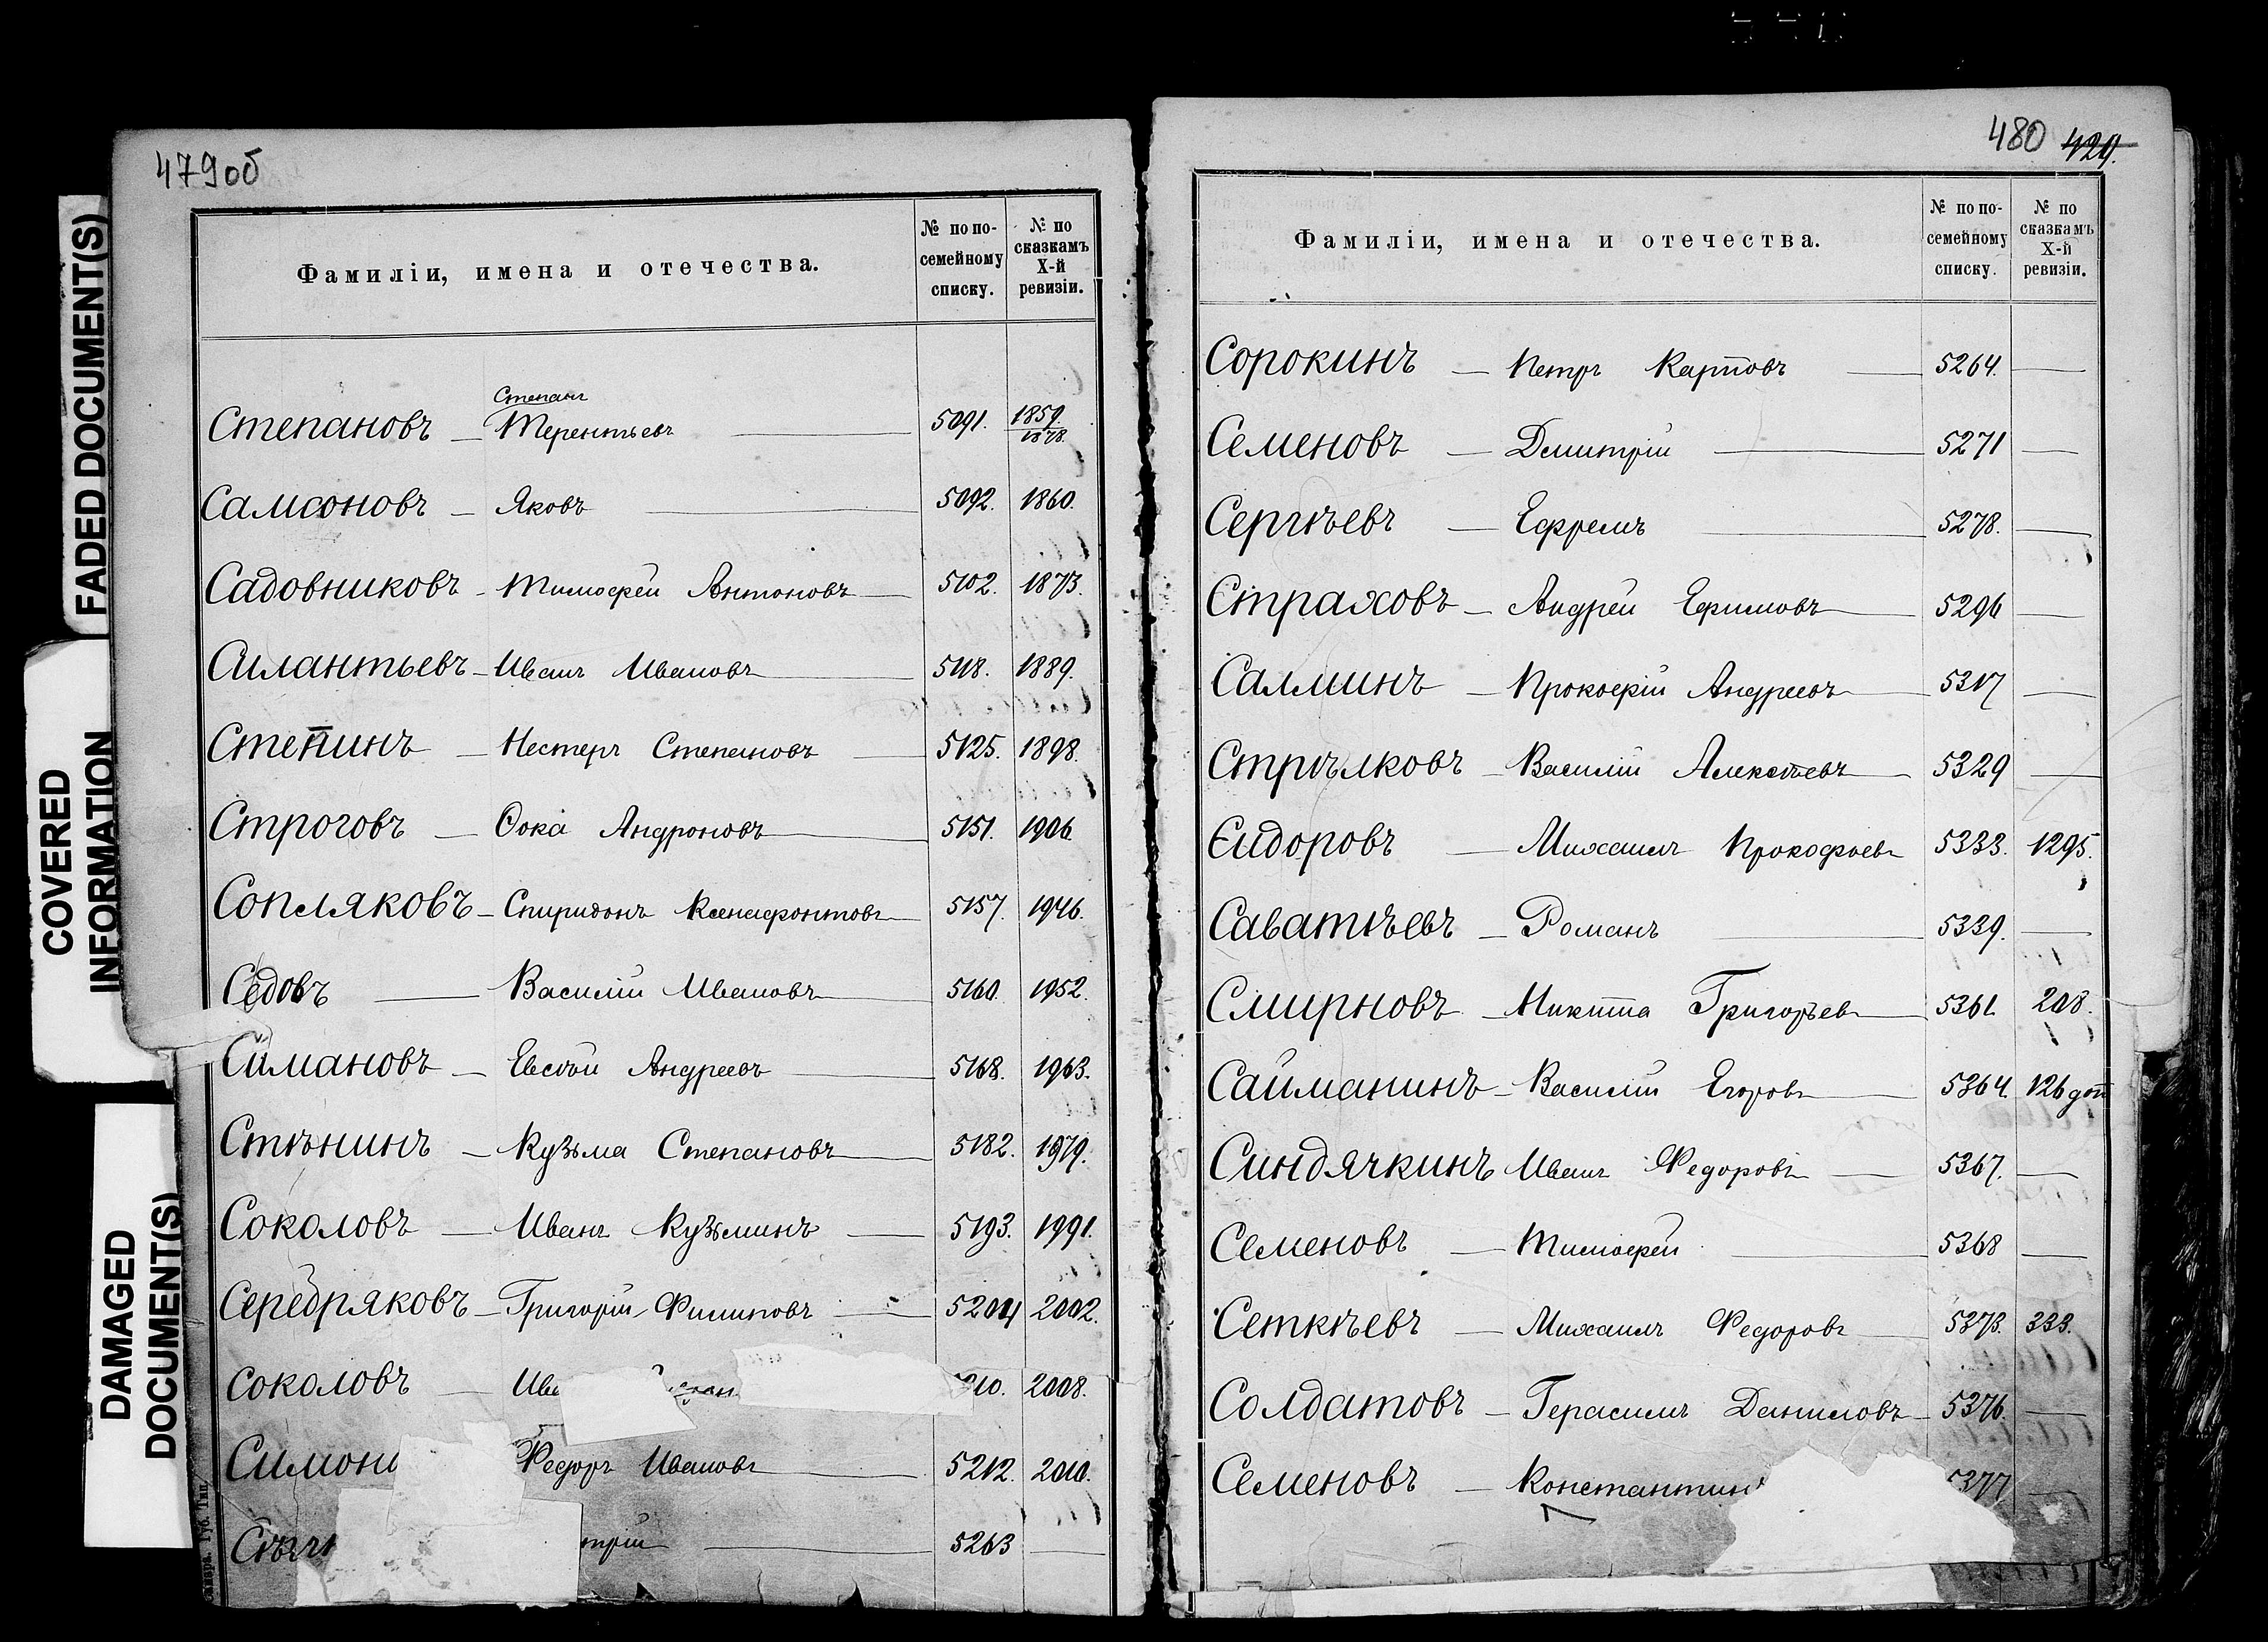 FADED DOCUMENT(S)
COVERED INFORMATION
DAMAGED DOCUMENT(S)
479об
Фамиліи, имена и отечества. № по по-семейному списку. № по сказкамъ X-й ревизіи.
Степанъ
Степановъ — Терентьевъ — 5091. 1859. 1878.
Самсоновъ — Яковъ — 5092. 1860.
Садовниковъ — Тимофей Антоновъ — 5102. 1873.
Силантьевъ — Иванъ Ивановъ — 5118. 1889.
Степинъ — Нестеръ Степановъ — 5125. 1898.
Строговъ — Ѳока Андроновъ — 5151. 1906.
Сопляковъ — Спиридонъ Ксенофонтовъ — 5157. 1946.
Седовъ — Василій Ивановъ — 5160. 1952.
Симановъ — Евсѣй Андреевъ — 5168. 1963.
Стѣнинъ — Кузьма Степановъ — 5182. 1979.
Соколовъ — Иванъ Кузьминъ — 5193. 1991.
Серебряковъ — Григорій Филиповъ — 5204 2002.
Соколовъ — Ива 210. 2008.
Симон Федоръ Ивановъ — 5212. 2010.
трій — 5263 —
Губ. Тип.
480 429.
Фамиліи, имена и отечества. № по по-семейному списку. № по сказкамъ X-й ревизіи.
Сорокинъ — Петръ Карповъ — 5264. —
Семеновъ — Дмитрій — 5271 —
Сергѣевъ — Ефремъ — 5278. —
Страховъ — Андрей Ефимовъ — 5296 —
Салминъ — Прокофій Андреевъ — 5317 —
Стрѣлковъ — Василій Алексѣевъ — 5329 —
Сидоровъ — Михаилъ Прокофьевъ 5333. 1295.
Саватѣевъ — Романъ — 5339. —
Смирновъ — Никита Григорьевъ — 5361. 208.
Сайманинъ — Василій Егоровъ — 5364. 126 доп
Синдячкинъ Иванъ Федоровъ — 5367. —
Семеновъ — Тимофей — 5368 —
Сеткѣевъ — Михаилъ Федоровъ — 5373. 333.
Солдатовъ — Герасимъ Даниловъ — 5376. —
Семеновъ — Константинъ 5377 —